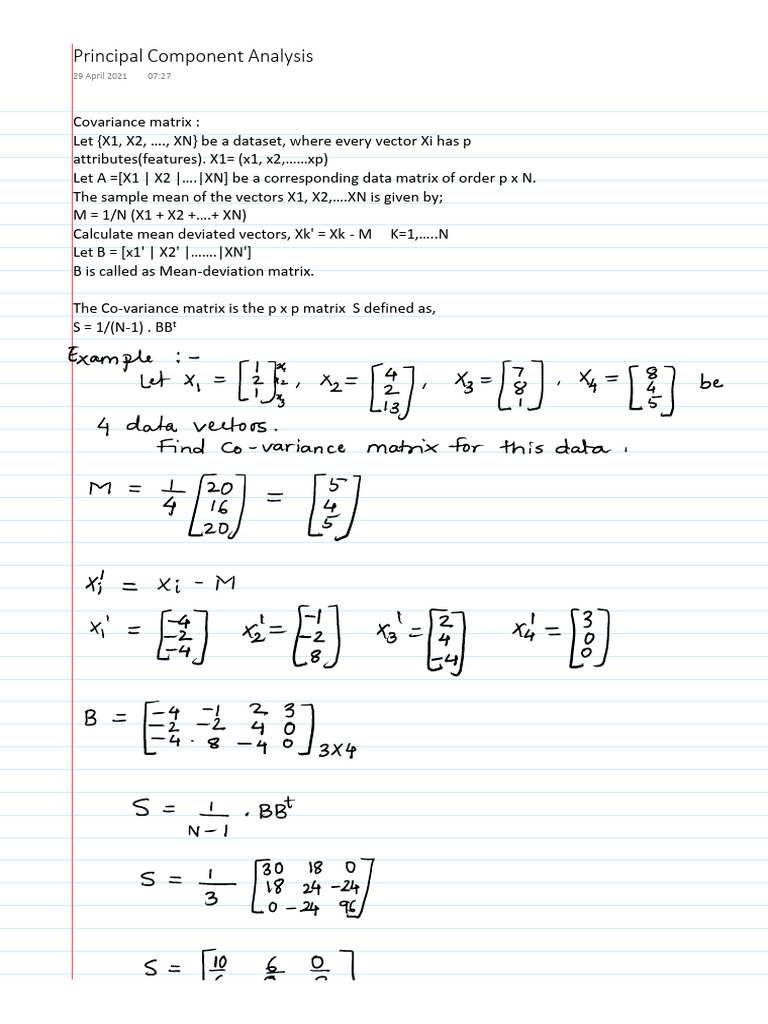 Principal Component Analysis
29 April 2021 07:27
Covariance matrix :
Let {X1, X2, ...., XN} be a dataset, where every vector Xi has p
attributes(features). X1= (x1, x2,......xp)
Let A =[X1 | X2 |....|XN] be a corresponding data matrix of order p x N.
The sample mean of the vectors X1, X2,....XN is given by;
M = 1/N (X1 + X2 +....+ XN)
Calculate mean deviated vectors, Xk' = Xk - M K=1,.....N
Let B = [x1' | X2' |.......|XN']
B is called as Mean-deviation matrix.
The Co-variance matrix is the p x p matrix S defined as,
S = 1/(N-1) . BBᵗ
Example :-
Let X₁ = [1 2 1] x₁ x₂ x₃, X₂ = [4 2 13], X₃ = [7 8 1], X₄ = [8 4 5] be
4 data vectors.
Find Co-variance matrix for this data.
M = 1/4 [20 16 20] = [5 4 5]
Xi' = Xi - M
X₁' = [-4 -2 -4] X₂' = [-1 -2 8] X₃' = [2 4 -4] X₄' = [3 0 0]
B = [-4 -1 2 3
-2 -2 4 0
-4 8 -4 0] 3X4
S = 1/(N-1) . BBᵗ
S = 1/3 [30 18 0
18 24 -24
0 -24 96]
S = [10 6 0